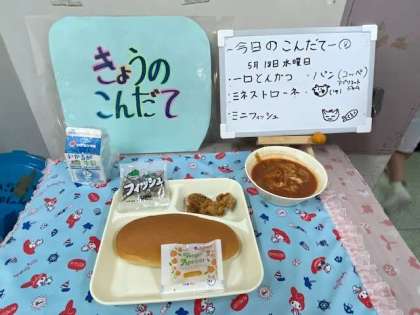 きょうの
こんだて
-今日のこんだて-
5月18日水曜日
・一口とんかつ ・パン(コッペ)
アプリコット
ジャム
・ミネストローネ ・(牛)
・ミニフィッシュ
フィッシュ
Apricot